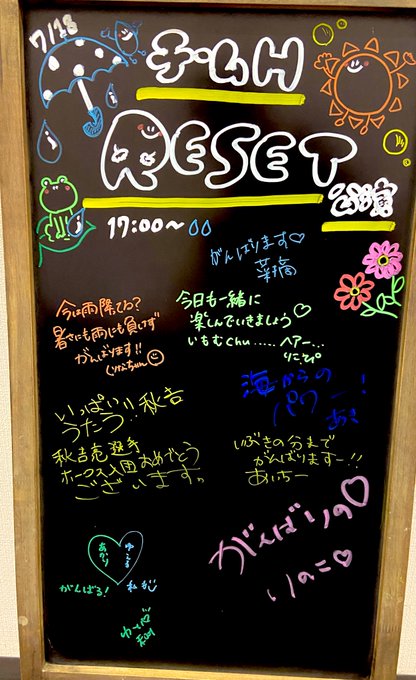 7/18
チームH
RESET
公演
17:00～
がんばります♡
菜摘
今は雨降てる?
暑さにも雨にも負けず
がんばります!!
りなちゃん
今日も一緒に
楽しんでいきましょう♡
いもむchu.....ヘアー...
りこぴ
海からの
パワー!
あき
いっぱい!!
うたう!!秋吉
秋吉亮選手
ホークス入団おめでとう
ございます。
いぶきの分まで
がんばりますー!!
あいちー
がんばりの♡
りのこ♡
ゆうな
あかり
がんばる!